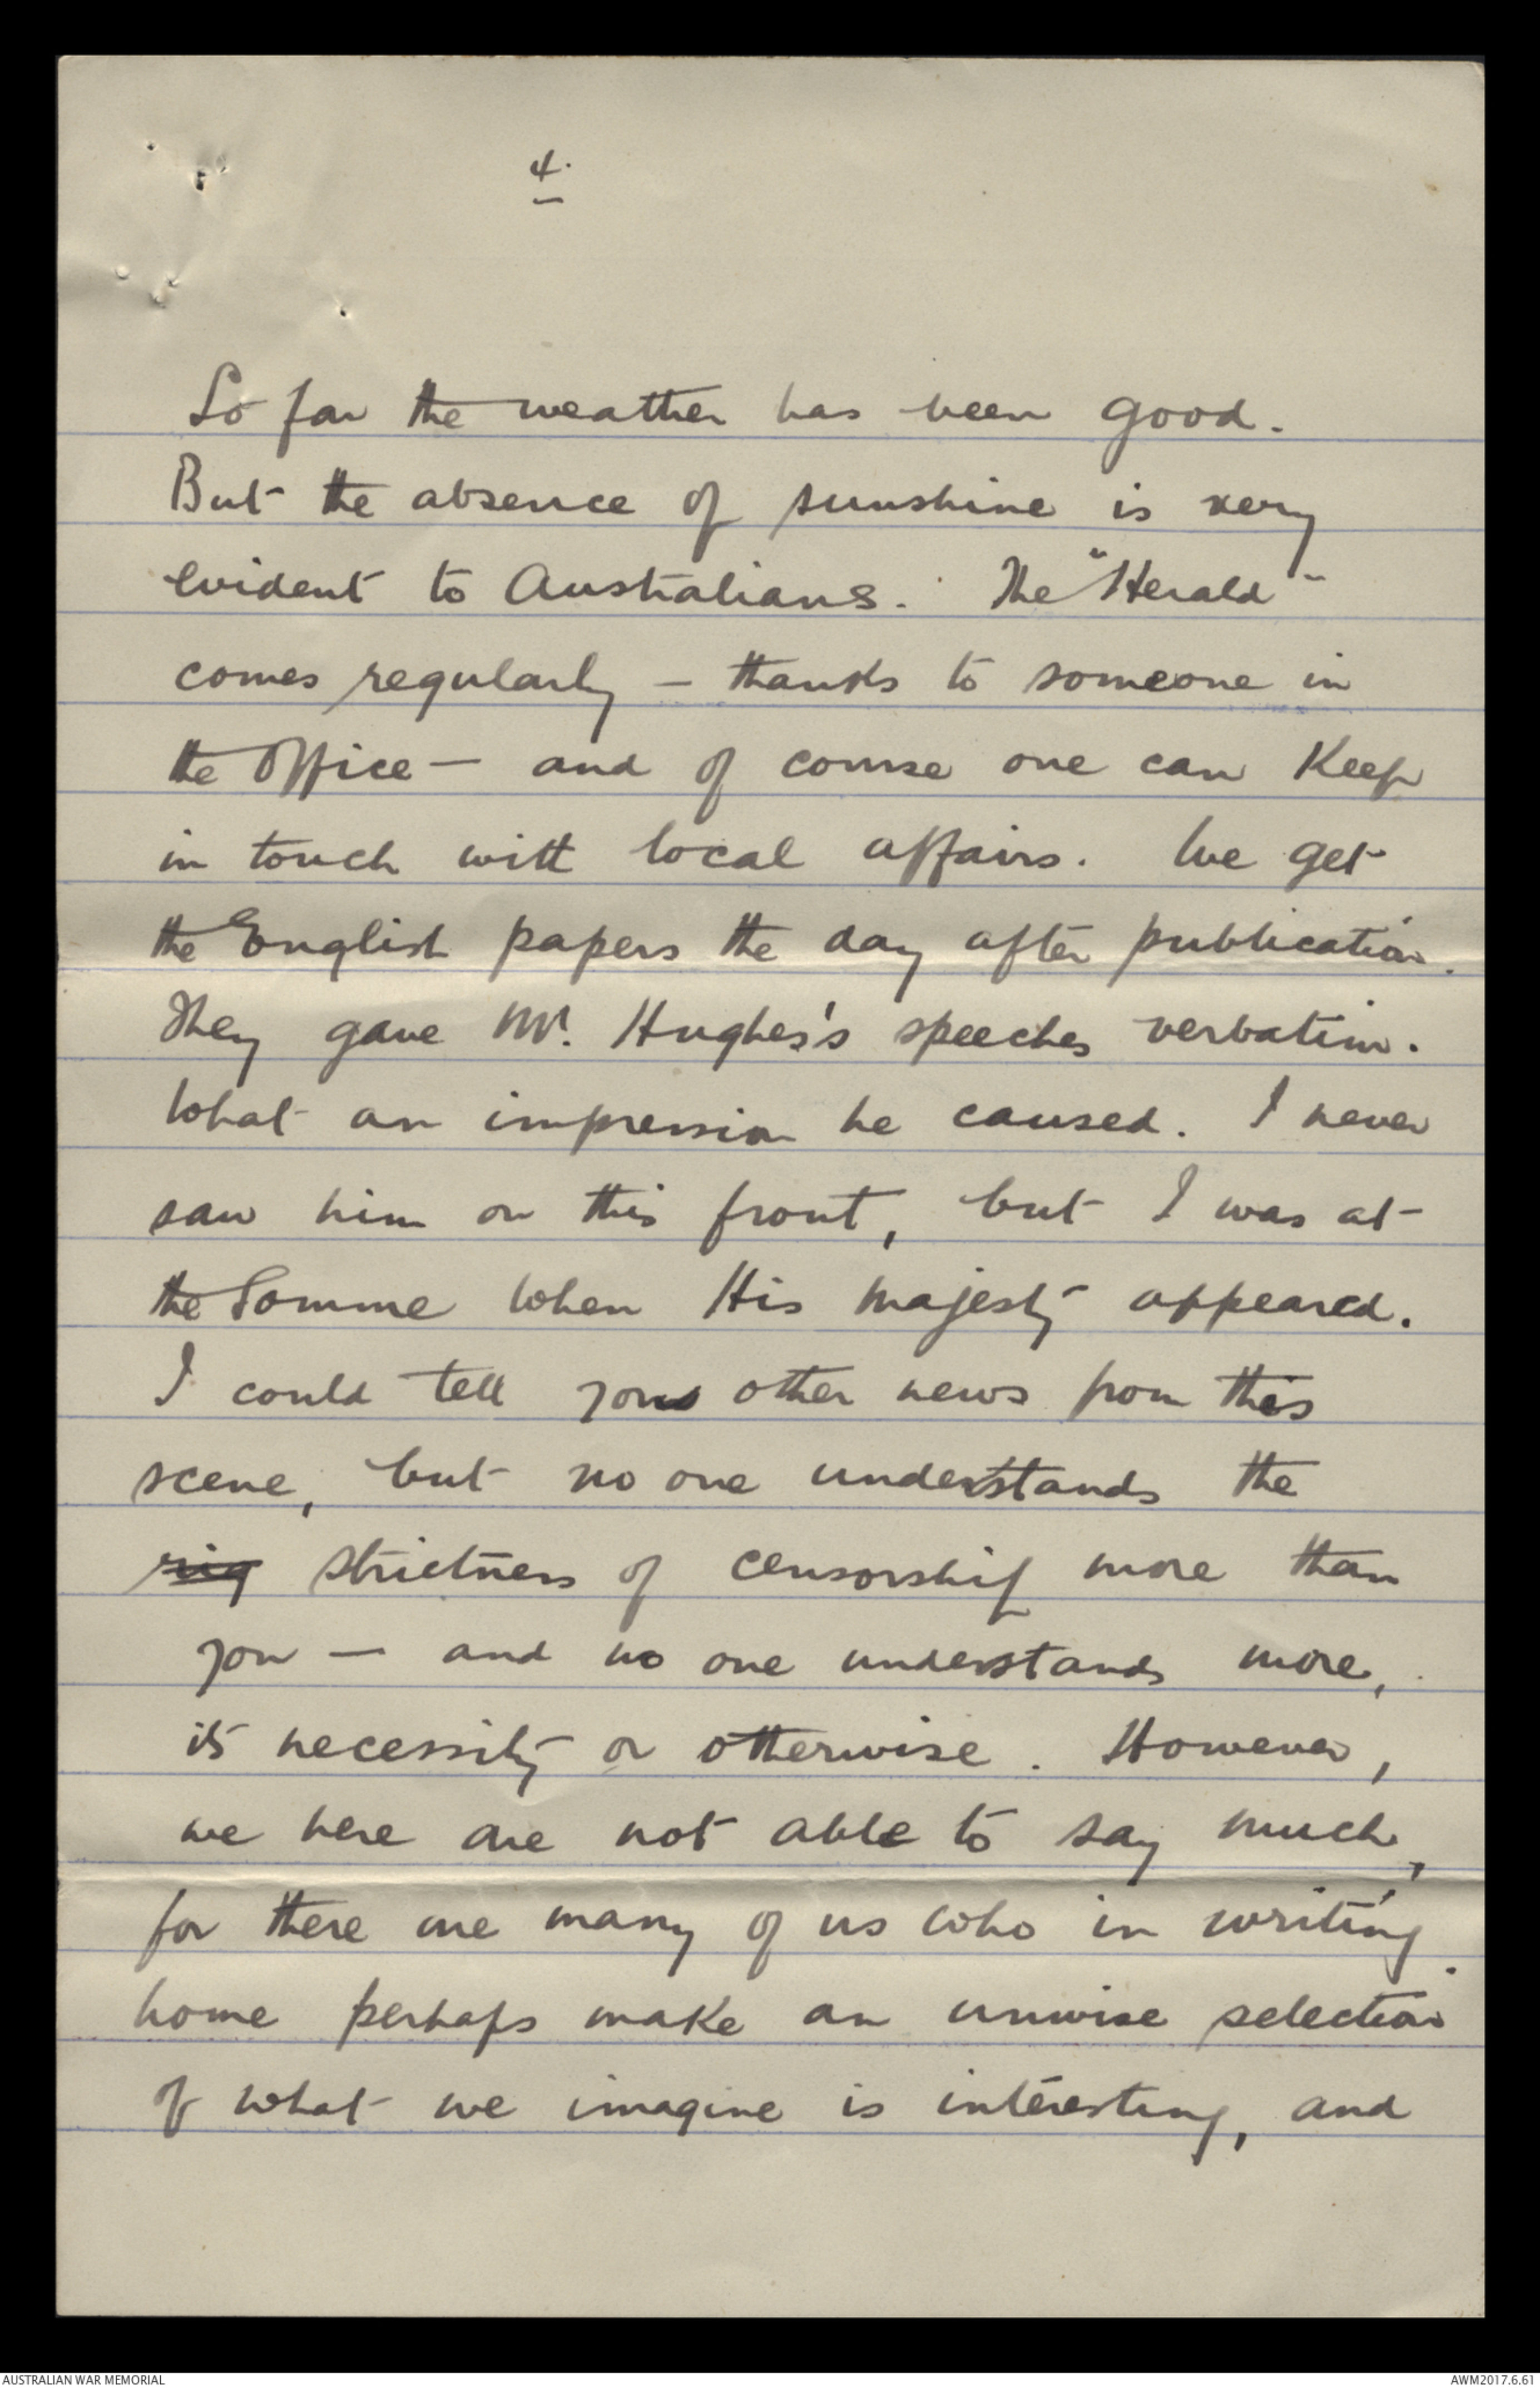 4.
So far the weather has been good.
But the absence of sunshine is very
evident to Australians. The "Herald"
comes regularly – thanks to someone in
the Office – and of course one can keep
in touch with local affairs. We get
the English papers the day after publication.
They gave Mr. Hughes's speeches verbatim.
What an impression he caused. I never
saw him on this front, but I was at
the Somme when His Majesty appeared.
I could tell you other news from this
scene, but no one understands the
rig strictness of censorship more than
you – and no one understands more,
its necessity or otherwise. However,
we here are not able to say much,
for there are many of us who in writing
home perhaps make an unwise selection
of what we imagine is interesting, and
AUSTRALIAN WAR MEMORIAL
AWM2017.6.61